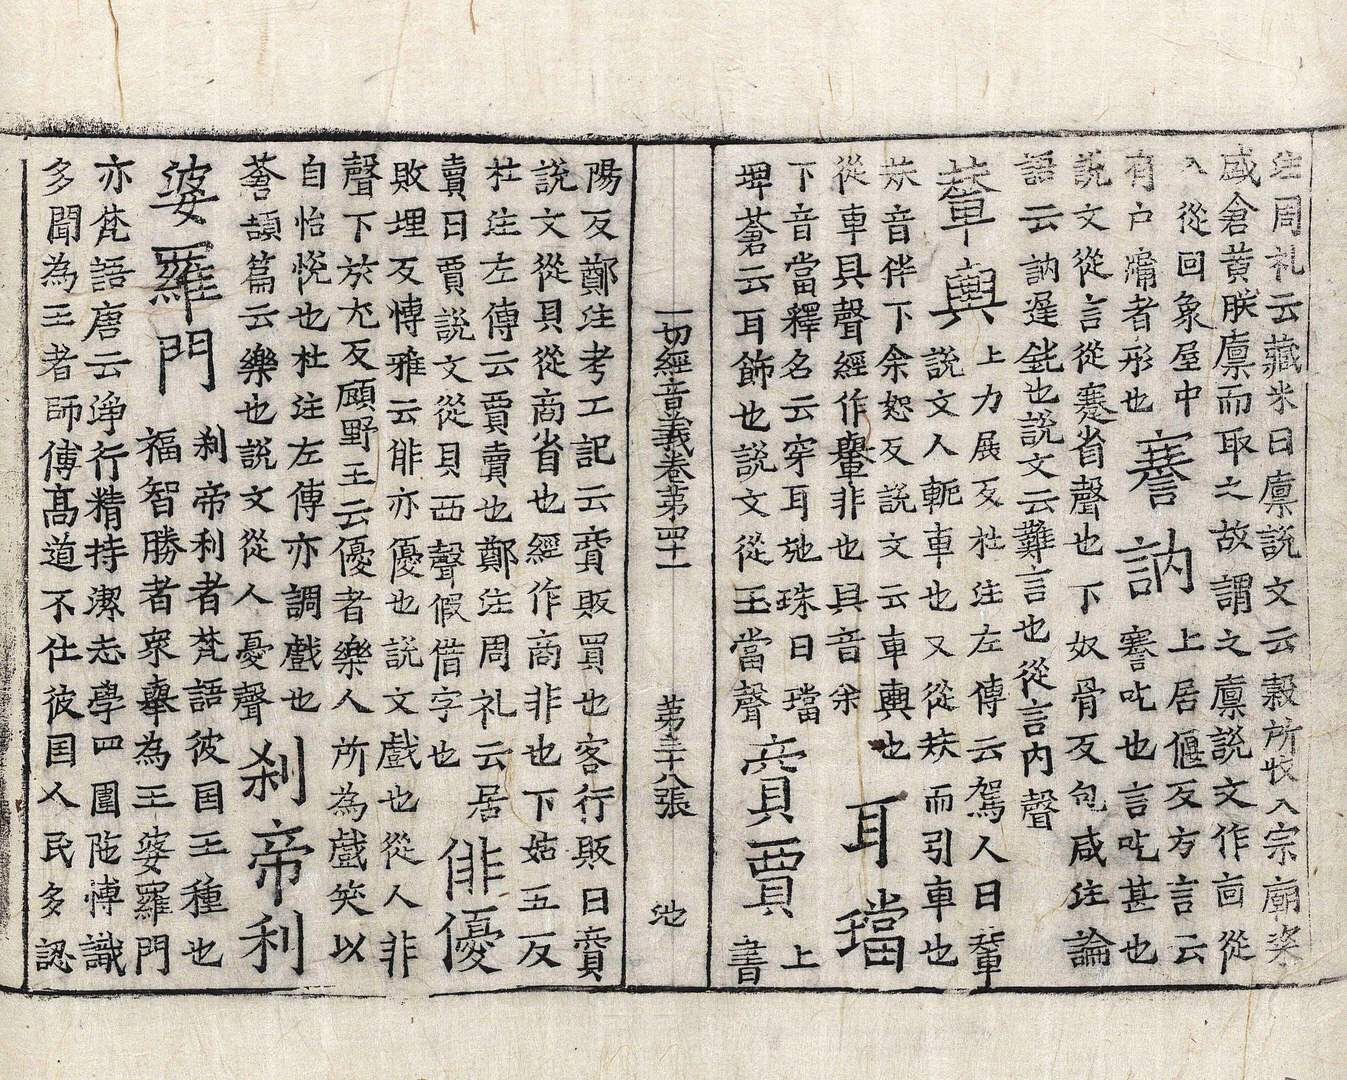 注周礼云藏米曰廩說文云穀所收入宗廟粢
盛倉黃朕廩而取之故謂之廩說文作㐭從
入從回象屋中
有户牖者形也
謇訥
上居偃反方言云
謇吃也言吃甚也
說文從言從蹇省聲也下奴骨反包咸注論
語云訥遲鈍也說文云難言也從言內聲
輦輿
上力展反杜注左傳云駕人曰輦
說文人軛車也又從㚘而引車也
㚘音伴下余恕反說文云車輿也
從車舁聲經作轝非也舁音余
耳璫
下音當釋名云穿耳施珠曰璫
埤蒼云耳飾也說文從玉當聲
賷賈
上
書
一切經音義卷第四十一 第三十八張 池
陽反鄭注考工記云賷販買也客行販曰賷
說文從貝從商省也經作商非也下姑五反
杜注左傳云賈賣也鄭注周礼云居
賣曰賈說文從貝西聲假借字也
俳優
敗埋反愽雅云俳亦優也說文戲也從人非
聲下於尢反顧野王云優者樂人所為戲笑以
自怡悅也杜注左傳亦調戲也
蒼頡篇云樂也說文從人憂聲
剎帝利
剎帝利者梵語彼囯王種也
福智勝者衆舉為王
婆羅門
婆羅門
亦梵語唐云淨行精持潔志學四圍陁愽識
多聞為王者師傅高道不仕彼囯人民多認